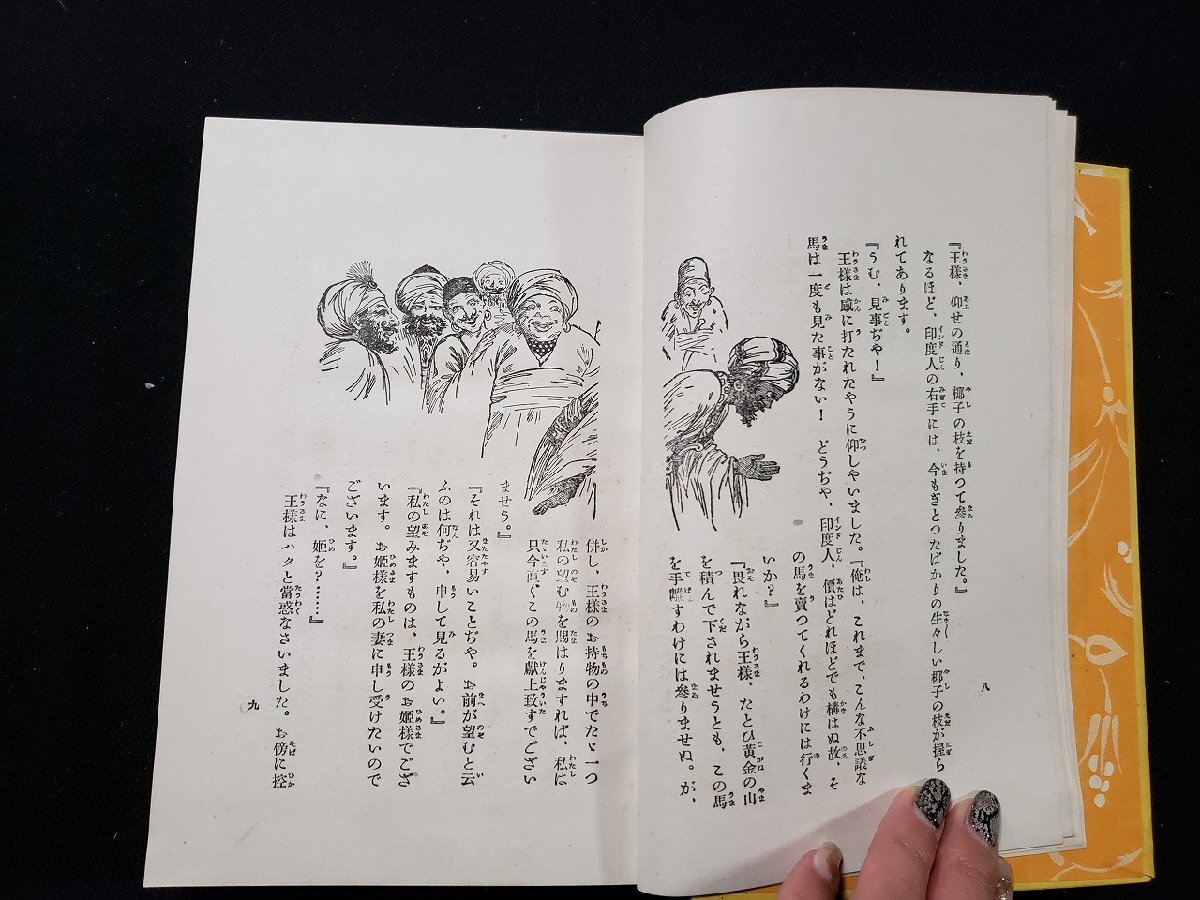 『王様、仰せの通り、椰子の枝を持つて參りました。』
なるほど、印度人の右手には、今もぎとつたばかりの生々しい椰子の枝が握ら
れてあります。
『うむ、見事ぢや！』
王様は感に打たれたやうに仰しやいました。『俺は、これまで、こんな不思議な
馬は一度も見た事がない！　どうぢや、印度人、價はどれほどでも構はぬ故、そ
の馬を賣つてくれるわけには行くま
いか？』
『畏れながら王様、たとひ黃金の山
を積んで下されませうとも、この馬
を手離すわけには參りませぬ。が、
八
併し、王様のお持物の中でたゞ一つ
私の望む物を賜はりますれば、私は
只今直ぐこの馬を獻上致すでござい
ませう。』
『それは又容易いことぢや。お前が望むと云
ふのは何ぢや、申して見るがよい。』
『私の望みますものは、王様のお姬様でござ
います。お姬様を私の妻に申し受けたいので
ございます。』
『なに、姬を？……』
王様はハタと當惑なさいました。お傍に控
九